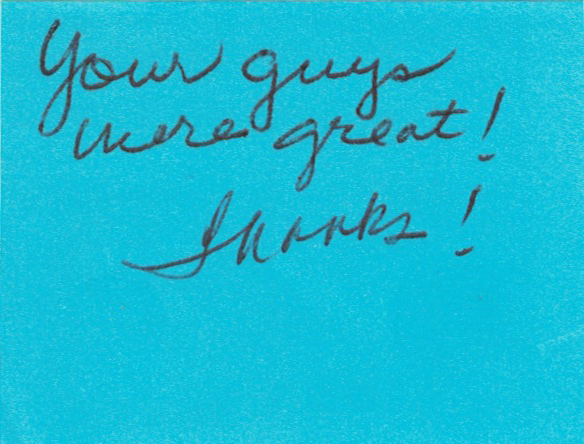 Your guys
were great!
Thanks!